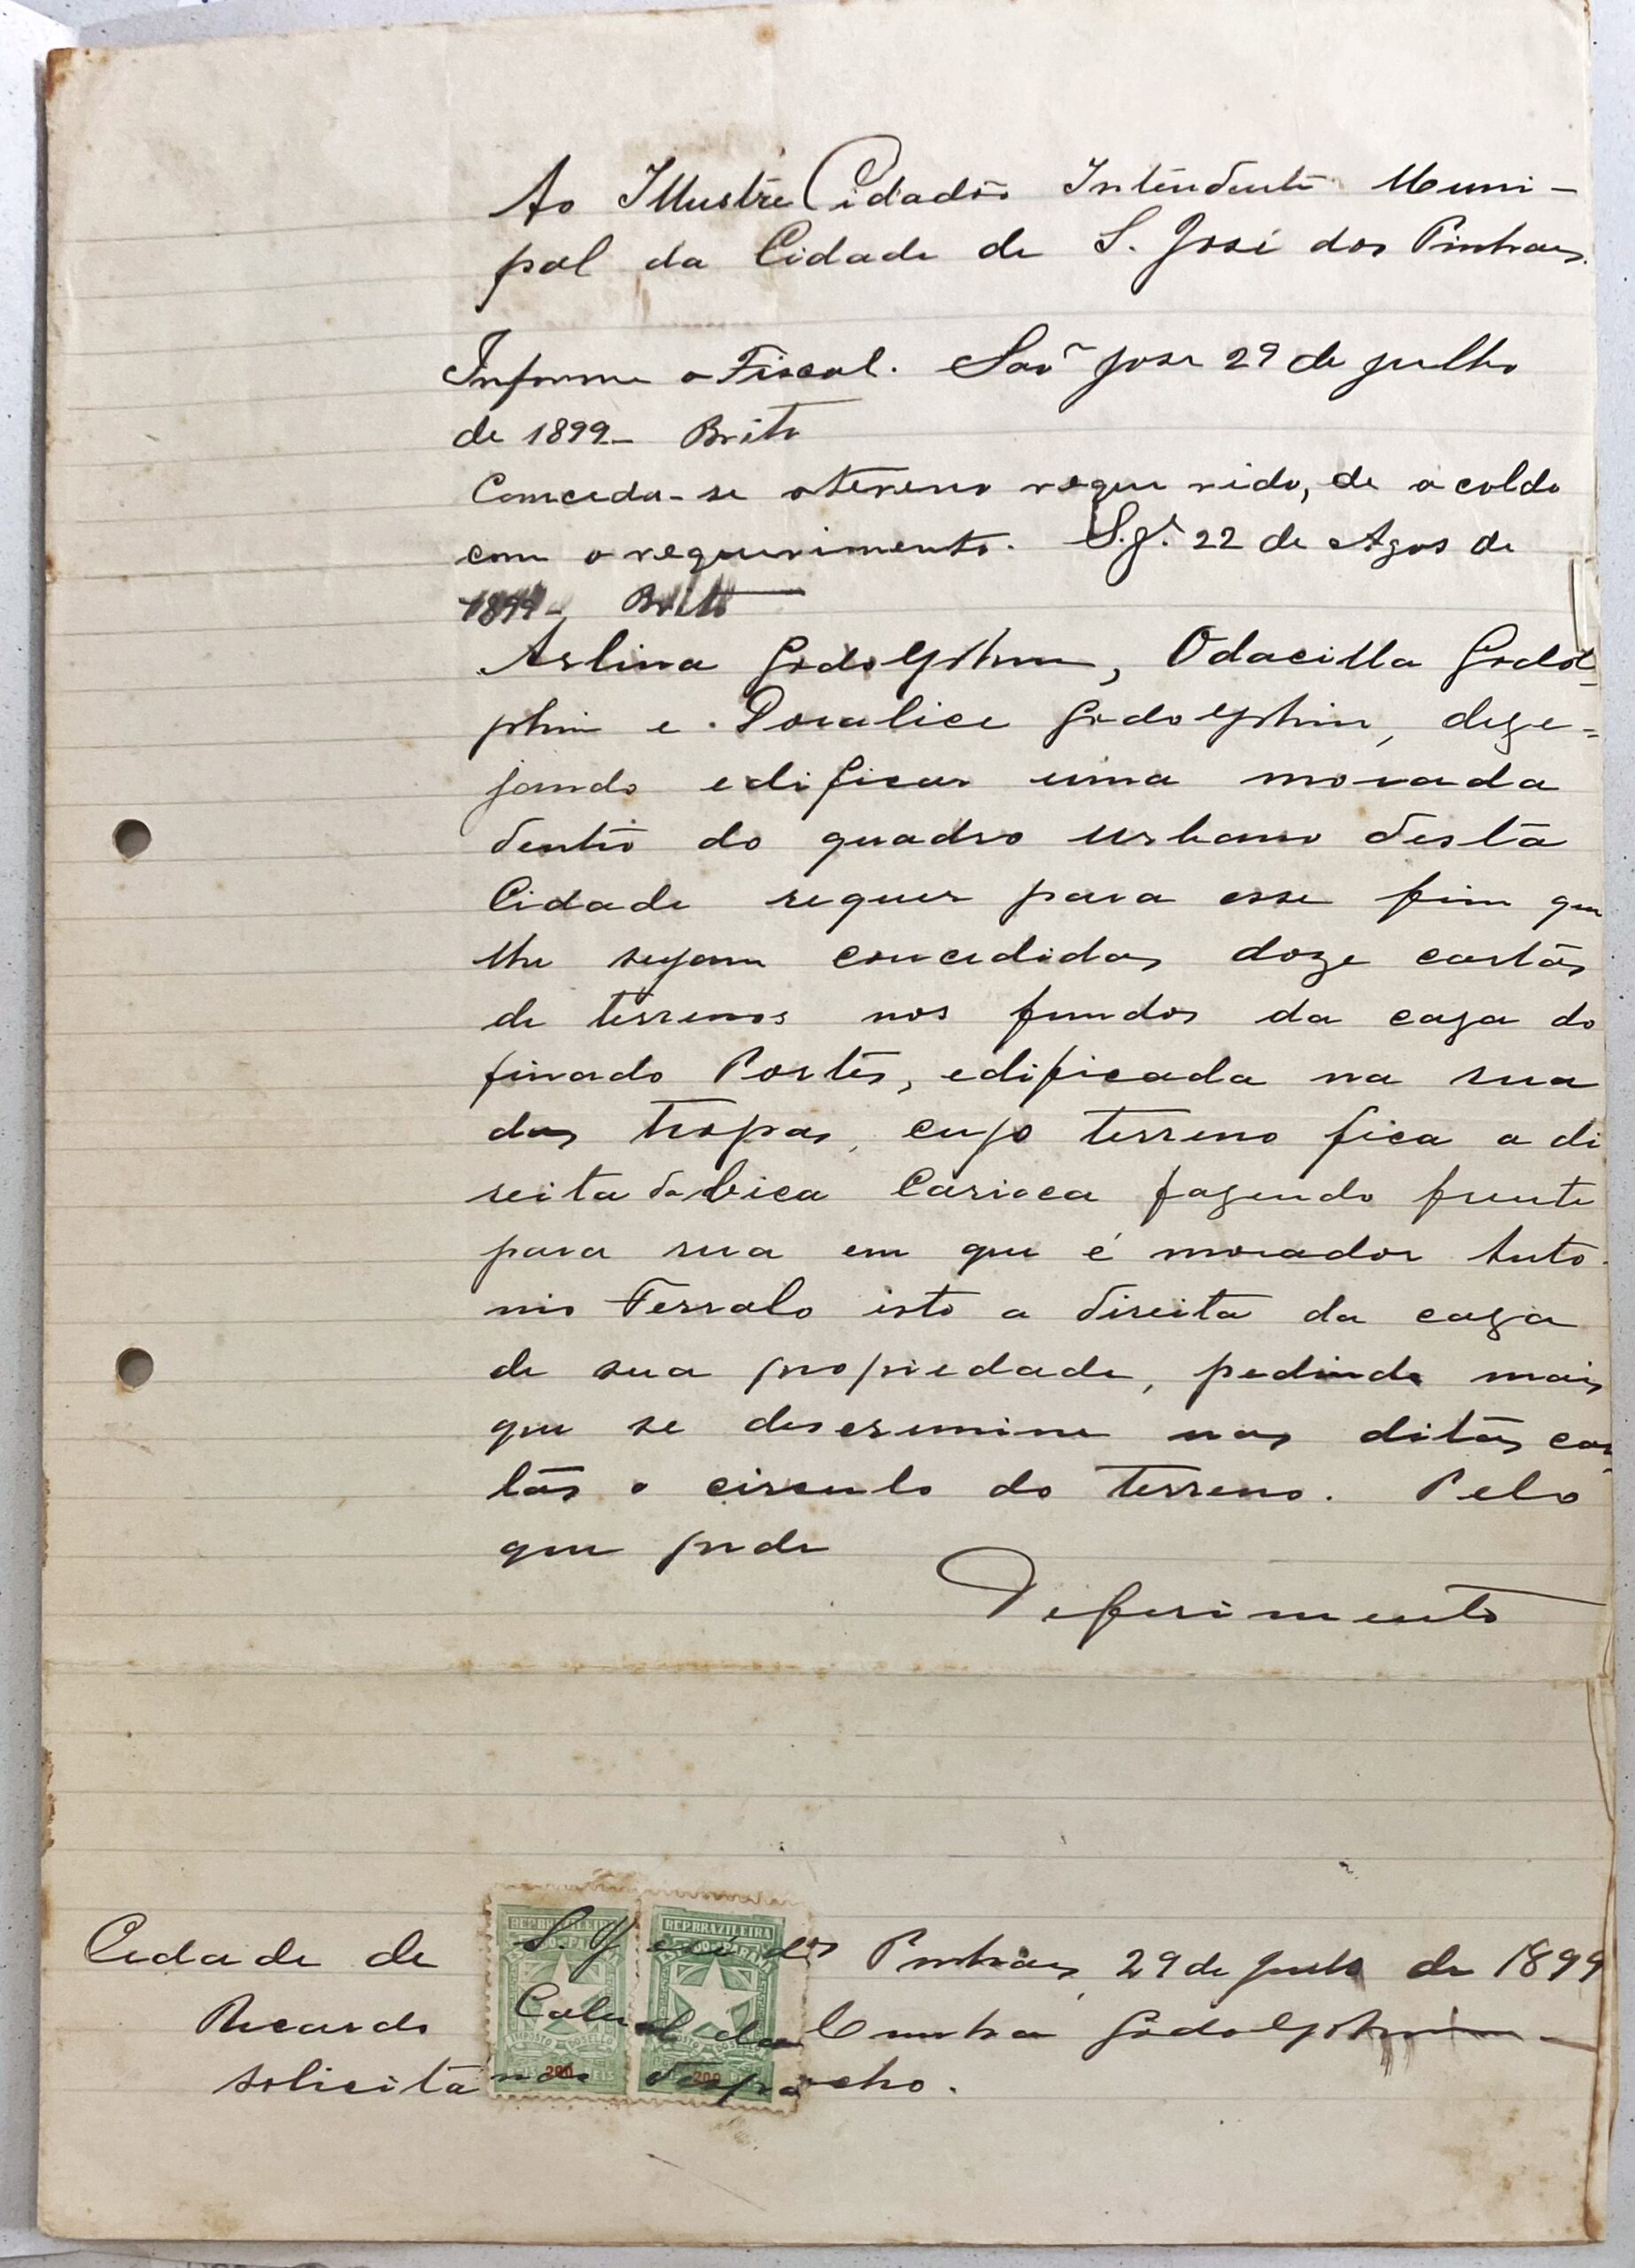 Ao Illustre Cidadão Intendente Muni-
pal da Cidade de S. José dos Pinhaes.
Informe o Fiscal. Saõ Jose 29 de julho
de 1899 - Brito
Conceda-se o terreno requerido, de acoldo
com o requerimento. S. J. 22 de Agos de
1899 - Brito
Aslina Godolphim, Odacilla Godol-
phim e Doralice Godolphim, deze=
jando edificar uma morada
dentro do quadro urbano desta
Cidade requer para esse fim que
lhe sejam concedidas doze cartas
de terrenos nos fundos da caza do
finado Portes, edificada na rua
das tropas, cujo terreno fica a di
reita da bica Carioca fazendo frente
para rua em que é morador Anto-
nio Ferralo isto a direita da caza
de sua propriedade, pedindo mais
que se descrimine nas ditas car-
tas o circulo do terreno. Pelo
que pede
Deferimento
REP. BRAZILEIRA REP. BRAZILEIRA
Cidade de S. José dos Pinhaes, 29 de Julho de 1899
Ricardo da Cunha Godolphim
200 200
solicitando despacho.